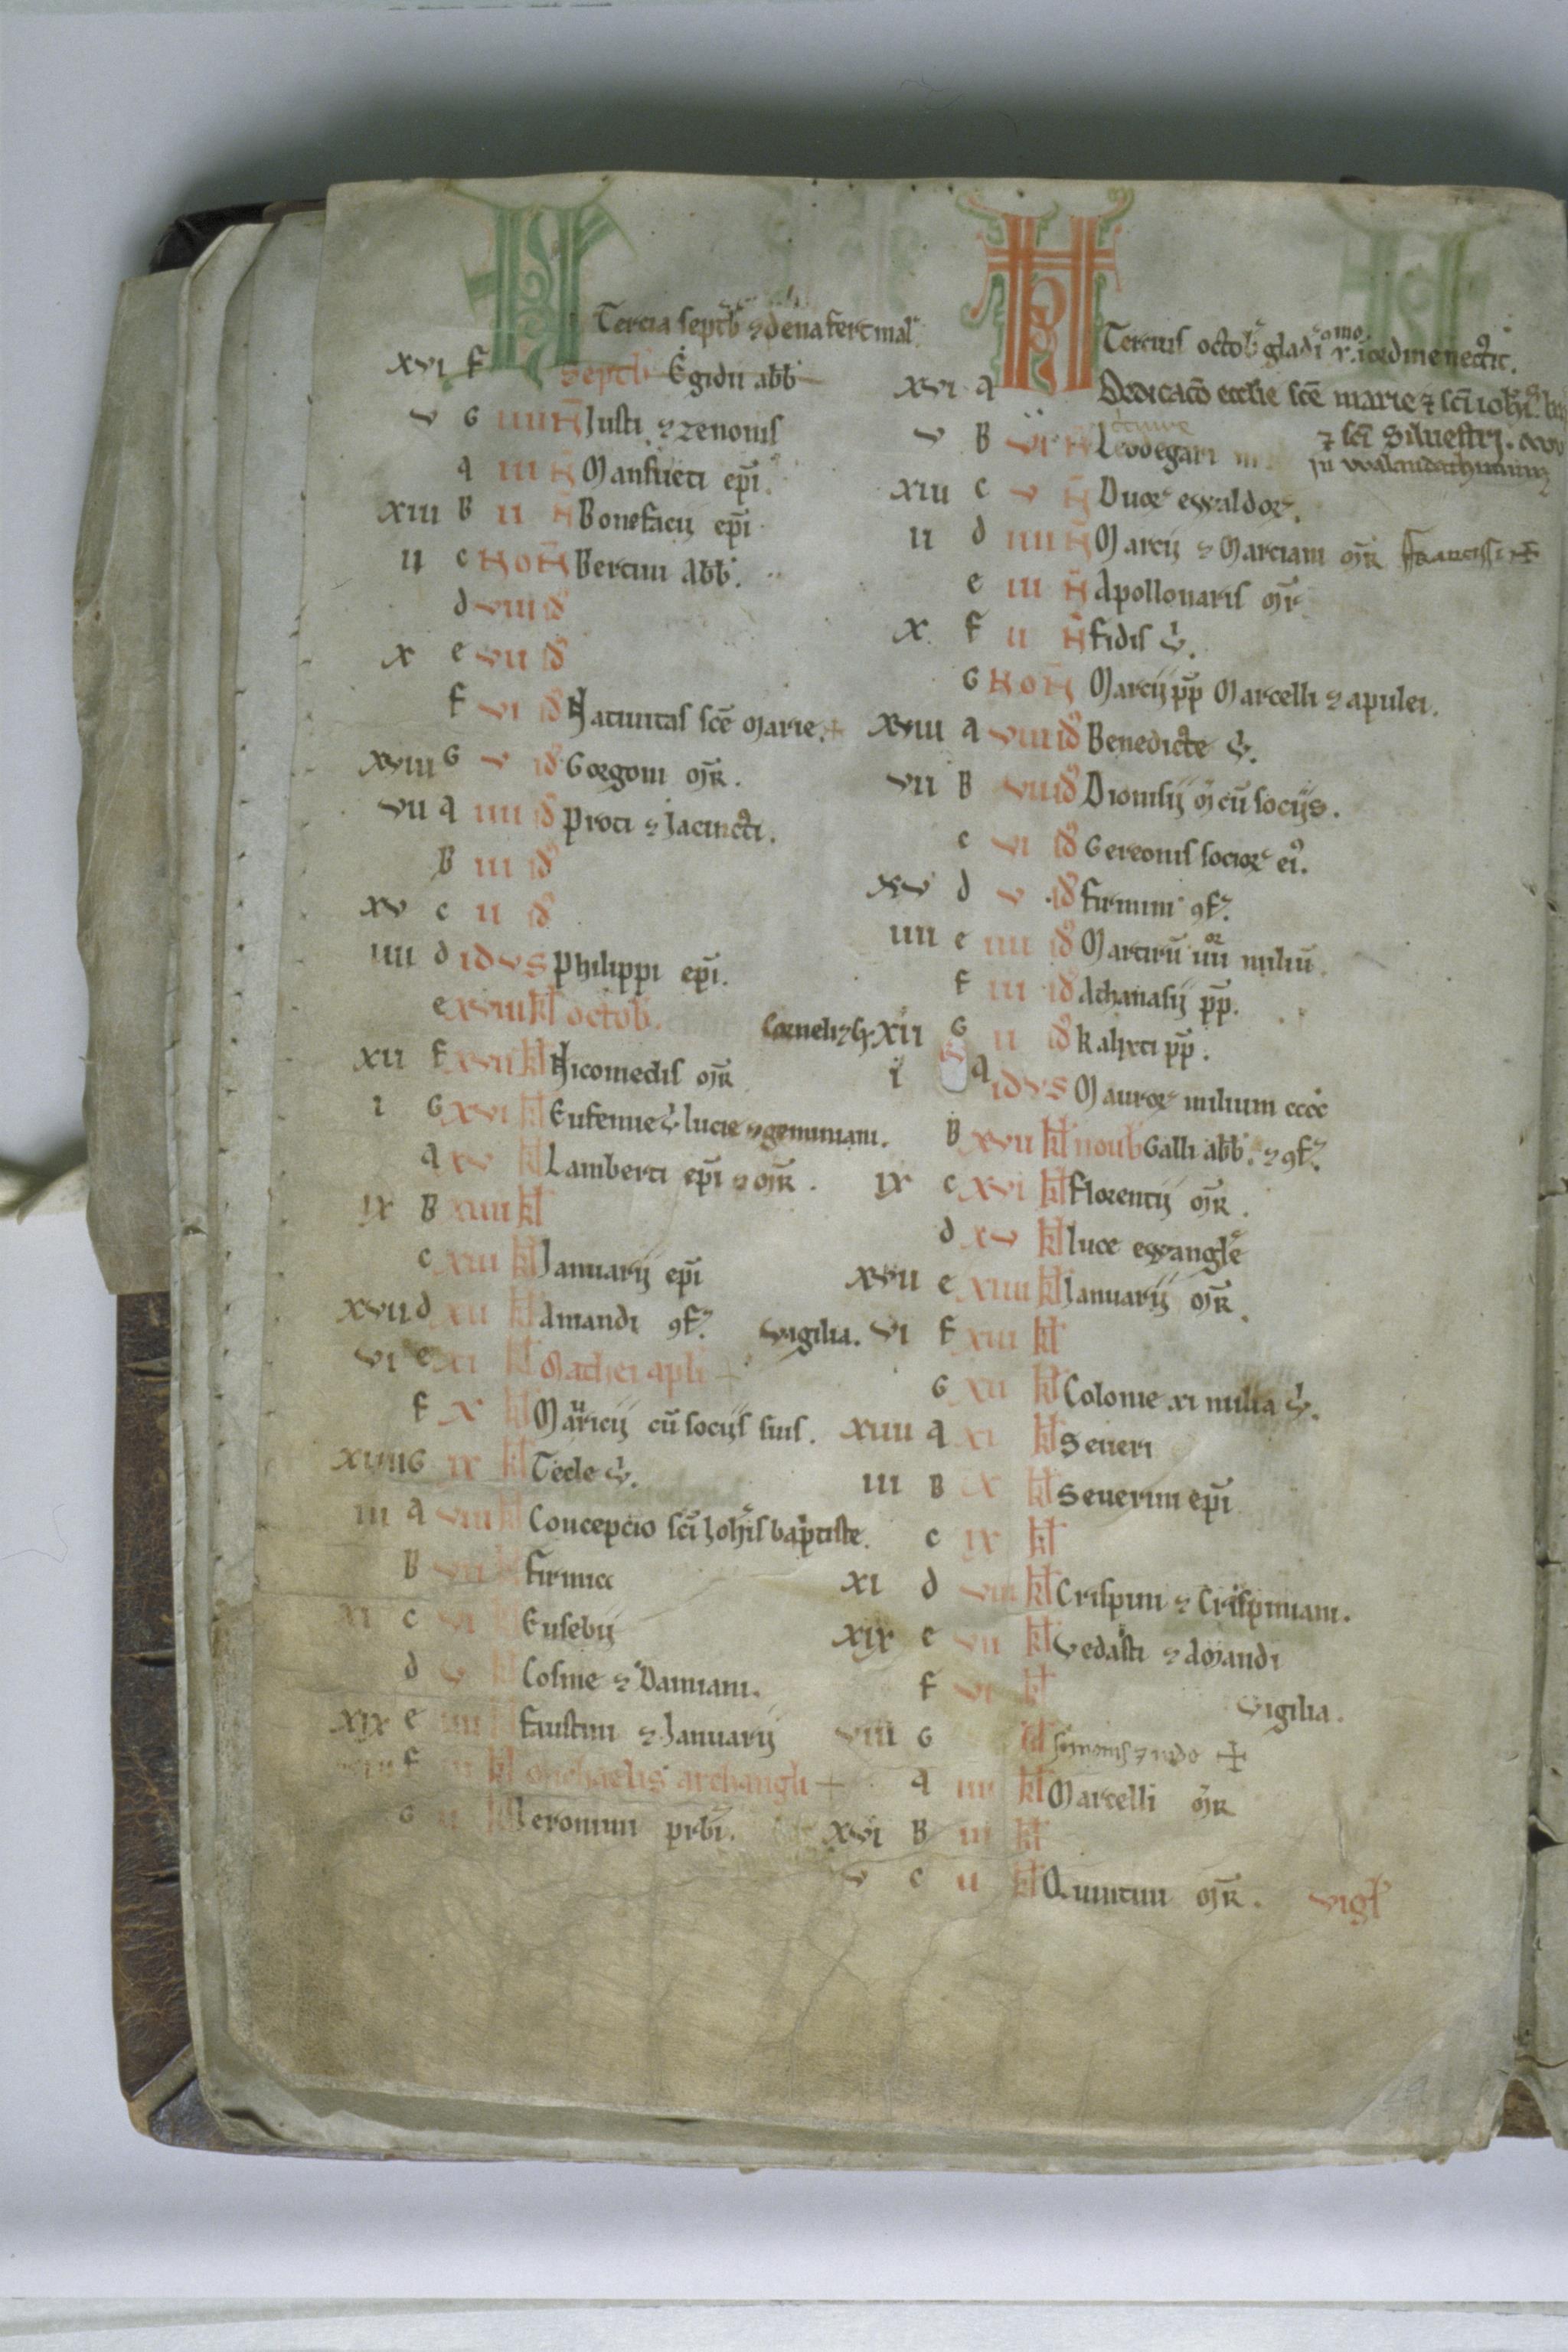 Tercia septb̄ ⁊ dena fert mal
xvi f septb Egidii abb
v G iiii N̄ Iusti ⁊ zenonis
a iii N̄ Mansueti ep̄i.
xiii B ii N̄ Bonefacij ep̄i
ii c NON̄ Bertini Abb.
d viii id
x e vii id
f vi id Natiuitas sc̄e Marie. +
xviii G v id Gorgoni M̄R.
vii a iiii id Proti ⁊ Iacincti.
B iii id
xv c ii id
iiii d idvs Philippi ep̄i.
e xviii kl octob.
xii f xvii kl Nicomedis M̄R
i G xvi kl Eufemie v̄ lucie ⁊ geminiani.
a xv kl Lamberti ep̄i ⁊ M̄R.
ix B xiiii kl
c xiii kl Ianuarij ep̄i
xvii d xii kl Amandi ꝯf.
vi e xi kl Mathei apl̄i +
f x kl Mauricij cū socijs suis.
xiiii G ix kl Tecle v̄.
iii a viii kl Concepcio sc̄i Ioh̄is baptiste.
B vii kl Firmini
xi c vi kl Eusebij
d v kl Cosme ⁊ Damiani.
xix e iiii kl Faustini ⁊ Ianuarij
f iii kl Michaelis archangli +
G ii kl Ieronimi prb̄i.
Tercius octob̄
xvi a Dedicacō ecclie sc̄e marie ⁊ sc̄i ioh̄is
⁊ sc̄i Siluestrj.
v B vi N̄ Leodegarii m
xiii c v N̄ Duor ewaldor.
ii d iiii N̄ Marcij ⁊ Marciani M̄R Francissi +
e iii N̄ Apollonaris M̄r
x f ii N̄ Fidis v̄.
G NON̄ Marcij pp̄ Marcelli ⁊ apulei.
xviii a viii id Benedicte v̄.
vii B vii id Dionisij M̄ cū socijs.
c vi id Gereonis socior ei⁹.
xv d v id Firmini ꝯf.
iiii e iiii id Martirū iiii or miliū
f iii id Athanasij pp̄.
Corneli ⁊ xii G ii id Kalixti pp̄.
i a idvs Mauror milium cccc
B xvii kl noub Galli abb. ⁊ ꝯf.
ix c xvi kl Florentij M̄R.
d xv kl luce ewangl̄e
xvii e xiiii kl Ianuarij M̄R.
vigilia. vi f xiii kl
G xii kl Colonie xi milia v̄.
xiiii a xi kl Seueri
iii B x kl Seuerini ep̄i
c ix kl
xi d viii kl Crispini ⁊ Crispiniani.
xix e vii kl vedasti ⁊ aMandi
f vi kl vigilia.
viii G kl simonis ⁊ iude +
a iiii kl Marcelli M̄R
xvi B iii kl
v c ii kl Quintini M̄R. vigl̄